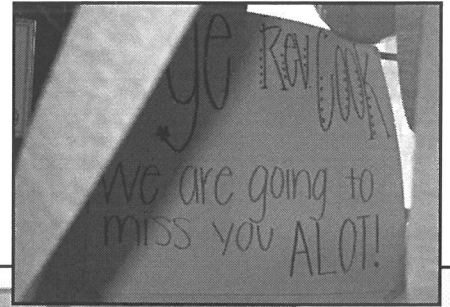 ye Rev. Cook
We are going to
miss you ALOT!